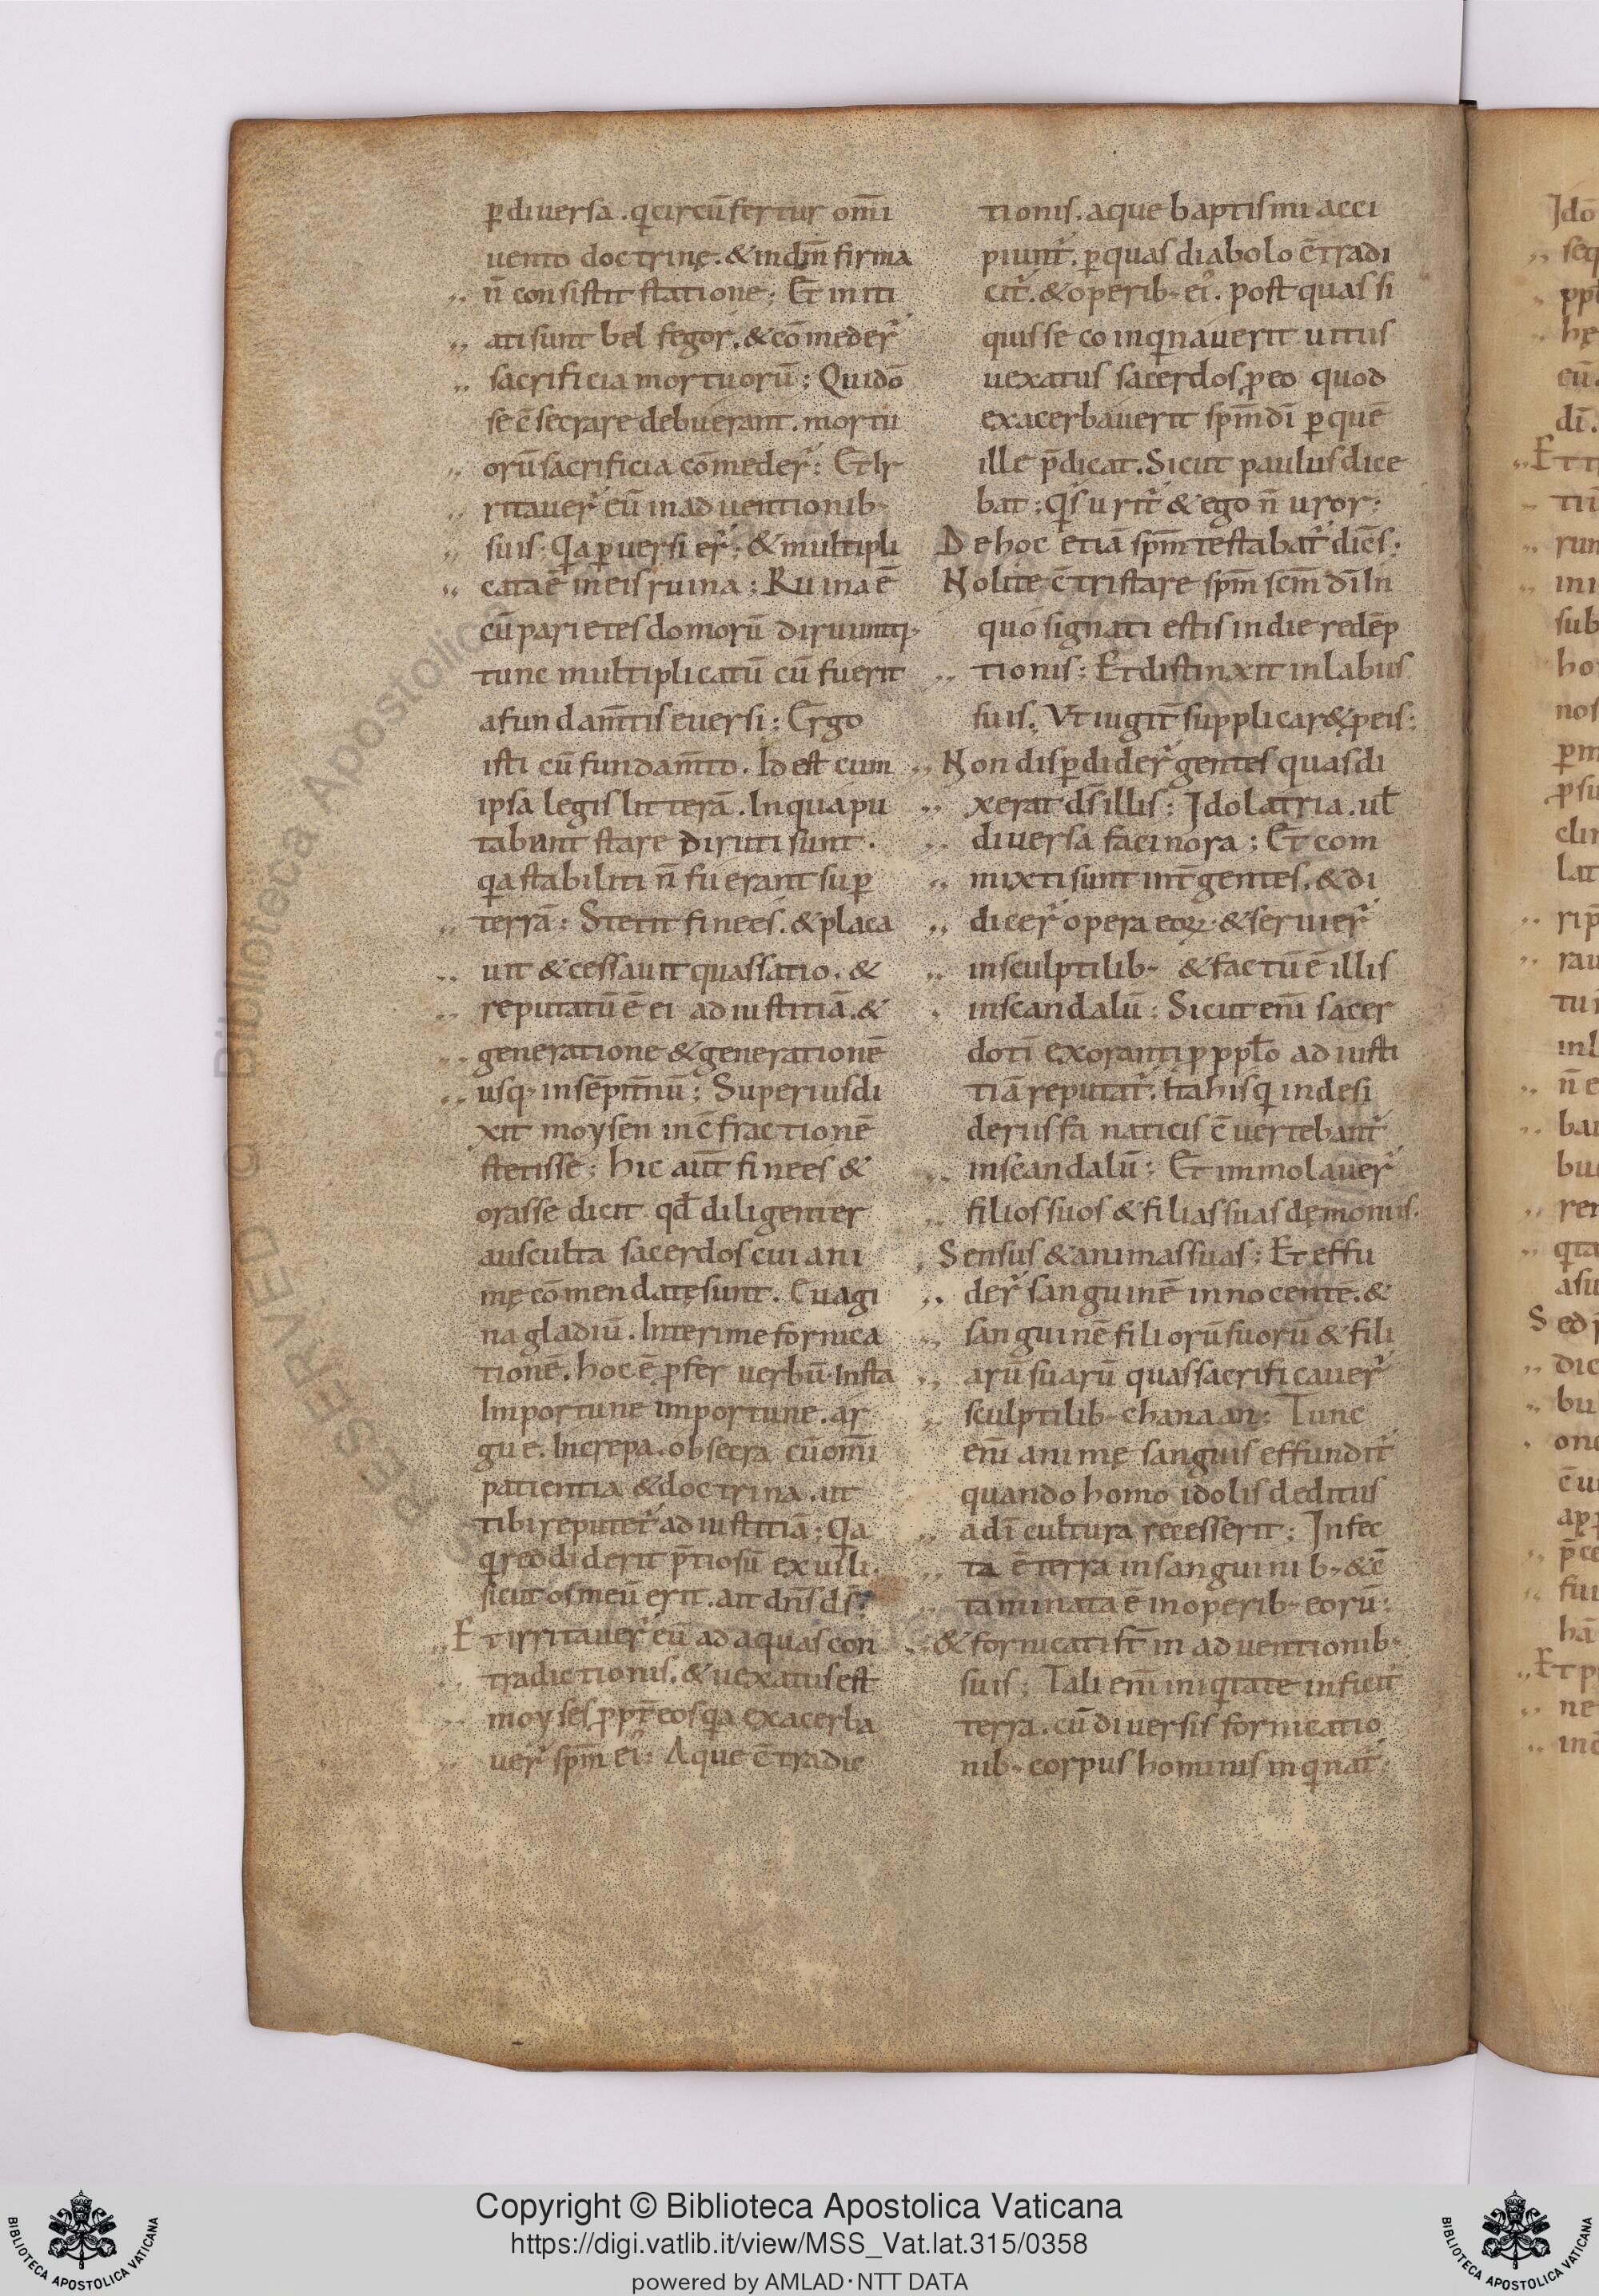 ꝑ diuersa . q̇ circū fertur om̄i
uento doctrinę . & in dm̄ firma
n̄ consistit statione ; Et initi
ati sunt bel fegor . & cōmeder̄
sacrificia mortuorū ; Qui dō
se c̄secrare debuerant . mortu
orū sacrificia cōmeder̄ ; Et Ir
ritauer̄ eū in ad uentionib;
suis . Qa ꝑuersi er̄ ; & multipli
cata ē in eis ruina ; Ruina ē
cū parietes domorū diruuntr̄ .
tunc multiplicatū cū fuerit
a fundam̄tis euersi ; Ergo
isti cū fundam̄to . Id est cum
ipsa legis litterā . In qua pu
tabant stare diruti sunt .
qa stabiliti n̄ fuerant suꝑ
terrā ; Stetit finees . & placa
uit & cessauit quassatio . &
reputatū ē ei ad iustitiā . &
generatione & generationē
usq; in sēpit̄nū ; Superius di
xit moysen in c̄fractionē
stetisse ; hic aut̄ finees &
orasse dicit qd̄ diligenter
ausculta sacerdos cui ani
mę cōmendatę sunt . Euagi
na gladiū . Interime fornica
tionē . hoc ē ꝓfer uerbū . Insta
Importune importune . ar
gue . Increpa . obsecra cū om̄i
patientia & doctrina . ut
tibi reputet̄ ad iustitiā ; Qa
q̇ reddiderit p̄tiosū ex uili .
sicut os meū erit . ait dn̄s ds̄ ;
Et irritauer̄ eū ad aquas con
tradictionis . & uexatus est
moyses ꝓpt̄ eos qa exacerba
uer̄ spm̄ ei ; Aque c̄tradic
tionis . aque baptismi acci
piunt̄ . ꝑ quas diabolo c̄tradi
cit̄ . & operib; ei . post quas si
quis se coinq̇nauerit uitus
uexatus sacerdos ꝓ eo quod
exacerbauerit spm̄ dī ꝑ quē
ille p̄dicat . Sicut paulus dice
bat ; Qis urit̄ & ego n̄ uror ;
De hoc etiā spm̄ testabat̄ dicēs ;
Nolite c̄tristare spm̄ scm̄ dī In
quo signati estis in die redēp
tionis ; Et distinxit in labiis
suis . Vt iugit̄ supplicar& ꝓ eis ;
Non disꝑdider̄ gentes quas di
xerat ds̄ illis ; Idolatria . ul̄
diuersa facinora ; Et com
mixti sunt int̄ gentes . & di
dicer̄ opera eoꝝ . & seruier̄
insculptilib; & factū ē illis
in scandalū ; Sicut eni sacer
doti exoranti ꝓ ppl̄o ad iusti
tiā reputat̄ . Ita his q̇ in desi
deriis fanaticis c̄uertebant̄
in scandalū ; Et immolauer̄
filios suos & filias suas dęmoniis .
Sensus & animas suas ; Et effu
der̄ sanguinē innocentē . &
sanguinē filiorū suorū & fili
arū suarū quas sacrificauer̄
sculptilib; chanaan ; Tunc
eni animę sanguis effundit̄
quando homo idolis deditus
a dī cultura recesserit ; Infec
ta ē terra in sanguinib; & c̄
taminata ē in operib; eorū ;
& fornicati st̄ in ad uentionib;
suis ; Tali eni iniq̇tate inficit̄
terra . cū diuersis fornicatio
nib; corpus hominis inq̇nat̄ ;
Copyright © Biblioteca Apostolica Vaticana
https://digi.vatlib.it/view/MSS_Vat.lat.315/0358
powered by AMLAD·NTT DATA
BIBLIOTECA APOSTOLICA VATICANA
BIBLIOTECA APOSTOLICA VATICANA